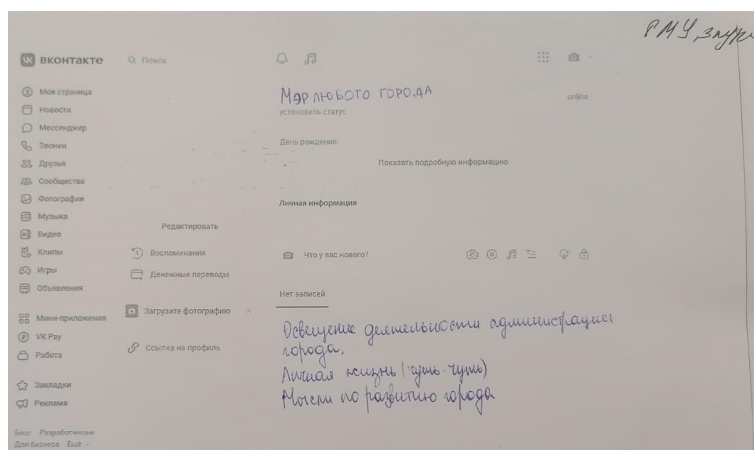 РМУ,
вконтакте
Поиск
Моя страница
Новости
Мессенджер
Звонки
Друзья
Сообщества
Фотографии
Музыка
Видео
Клипы
Игры
Объявления
Мини-приложения
VK Pay
Работа
Закладки
Реклама
Блог Разработчикам
Для бизнеса Ещё
Редактировать
Воспоминания
Денежные переводы
Загрузите фотографию
Ссылка на профиль
Мэр любого города
online
установить статус
День рождения:
Показать подробную информацию
Личная информация
Что у вас нового?
Нет записей
Освещение деятельности администрации
города.
Личная жизнь (чуть-чуть)
Мысли по развитию города